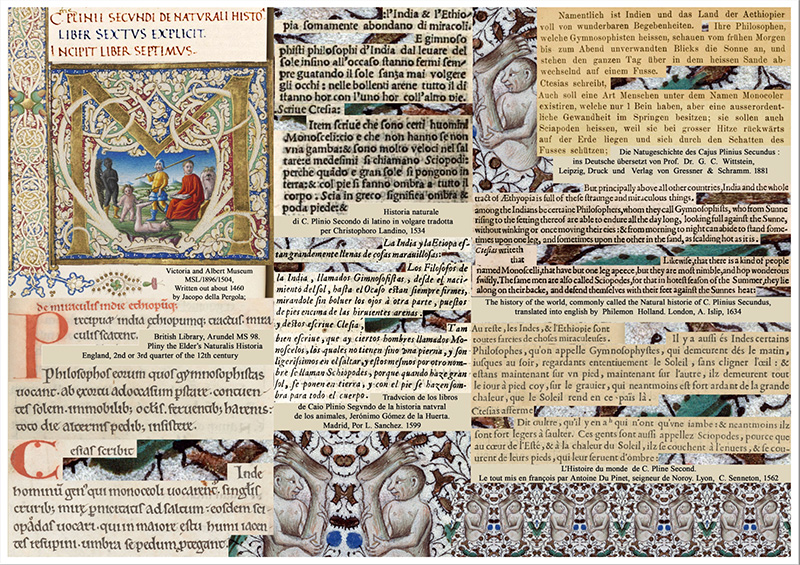 C PLINII SECVNDI DE NATVRALI HISTO
LIBER SEXTVS EXPLICIT.
INCIPIT LIBER SEPTIMVS.
Victoria and Albert Museum
MSL/1896/1504,
Written out about 1460
by Jacopo della Pergola;
British Library, Arundel MS 98.
Pliny the Elder's Naturalis Historia
England, 2nd or 3rd quarter of the 12th century
Philosophos eorum quos gymnosophistas
l'India & l'Ethio
pia somamente abondano di miracoli.
E gimnoso
phisti philosophi d'India dal leuare del
sole insino all'occaso stanno fermi sem-
pre guatando il sole sanza mai volgere
gli occhi: nelle bollenti arene tutto il di
stanno hor con l'uno hor coll'altro pie.
Scriue Ctesia:
Item scriue che sono certi huomini
Monosceli: cio e che non hanno se non
vna gamba: & sono molto veloci nel sal
tare: e medesimi si chiamano Sciopodi:
perche quãdo e gran sole si pongono in
terra: & col pie si fanno ombra a tutto il
corpo. Scia in greco significa ombra &
poda piede: &
Historia naturale
di C. Plinio Secondo di latino in volgare tradotta
per Christophoro Landino, 1534
La India y la Etiopia es-
tan grandemente llenas de cosas marauillosas:
Los Filosofos de
la India, llamados Gimnosofistas, desde el naci-
miento del sol, hasta el Ocaso estan siempre firmes,
mirandole sin boluer los ojos à otra parte, puestos
de pies encima de las hiruientes arenas:
y destos escriue Ctesia,
Tam
bien escriue, que ay ciertos hombres llamados Mo-
noscelos, los quales no tienen sino vna pierna, y son
ligerissimos en el saltar, y estos mesmos por otro nom-
bre se llaman Schiopodes, porque quando haze gran
sol, se ponen en tierra, y con el pie se hazen som-
bra para todo el cuerpo.
Tradvcion de los libros
de Caio Plinio Segvndo de la historia natvral
de los animales, Jerónimo Gómez de la Huerta.
Madrid, Por L. Sanchez. 1599
Namentlich ist Indien und das Land der Aethiopier
voll von wunderbaren Begebenheiten.
Ihre Philosophen,
welche Gymnosophisten heissen, schauen vom frühen Morgen
bis zum Abend unverwandten Blicks die Sonne an, und
stehen den ganzen Tag über in dem heissen Sande ab-
wechselnd auf einem Fusse.
Ctesias schreibt,
Auch soll eine Art Menschen unter dem Namen Monocoler
existiren, welche nur 1 Bein haben, aber eine ausserordent-
liche Gewandheit im Springen besitzen; sie sollen auch
Sciapoden heissen, weil sie bei grosser Hitze rückwärts
auf der Erde liegen und sich durch den Schatten des
Fusses schützen;
Die Natugeschichte des Cajus Plinius Secundus :
ins Deutsche übersetzt von Prof. Dr. G. C. Wittstein,
Leipzig, Druck und Verlag von Gressner & Schramm. 1881
But principally above all other countries, India and the whole
tract of Æthyopia is full of these strange and miraculous things.
among the Indians be certain Philosophers, whom they call Gymnosophists, who from Sunne
rising to the setting thereof are able to endure all the day long, looking full against the Sunne,
without winking or once moving their eies: & from morning to night can abide to stand some-
times upon one leg, and sometimes upon the other in the sand, as scalding hot as it is.
Ctesias writeth
Likewise, that there is a kind of people
named Monoscelli, that have but one leg apeece, but they are most nimble, and hop wonderous
swiftly. The same men are also called Sciopodes, for that in hotest season of the Summer, they lie
along on their backe, and defend themselves with their feet against the Sunnes heat:
The history of the world, commonly called the Natural historie of C. Plinius Secundus,
translated into english by Philemon Holland. London, A. Islip, 1634
Au reste, les Indes, & l'Ethiopie sont
toutes farcies de choses miraculeuses.
Il y a aussi és Indes certains
Philosophes, qu'on appelle Gymnosophystes, qui demeurent dés le matin,
jusques au soir, regardans ententiuement le Soleil, sans cligner l'œil: &
estans maintenant sur vn pied, maintenant sur l'autre, ilz demeurent tout
le iour à pied coy, sur le grauier, qui neantmoins est fort ardant de la grande
chaleur, que le Soleil rend en ce païs là.
Ctesias afferme
Dit oultre, qu'il y en a qui n'ont qu'vne iambe: & neantmoins ilz
sont fort legers à saulter. Ces gents sont aussi appellez Sciopodes, pource que
au cœur de l'Esté, & à la chaleur du Soleil, ilz se couchent à l'enuers, & se cou-
urent de leurs pieds, qui leur seruent d'ombre:
L'Histoire du monde de C. Pline Second.
Le tout mis en françois par Antoine Du Pinet, seigneur de Noroy. Lyon, C. Senneton, 1562